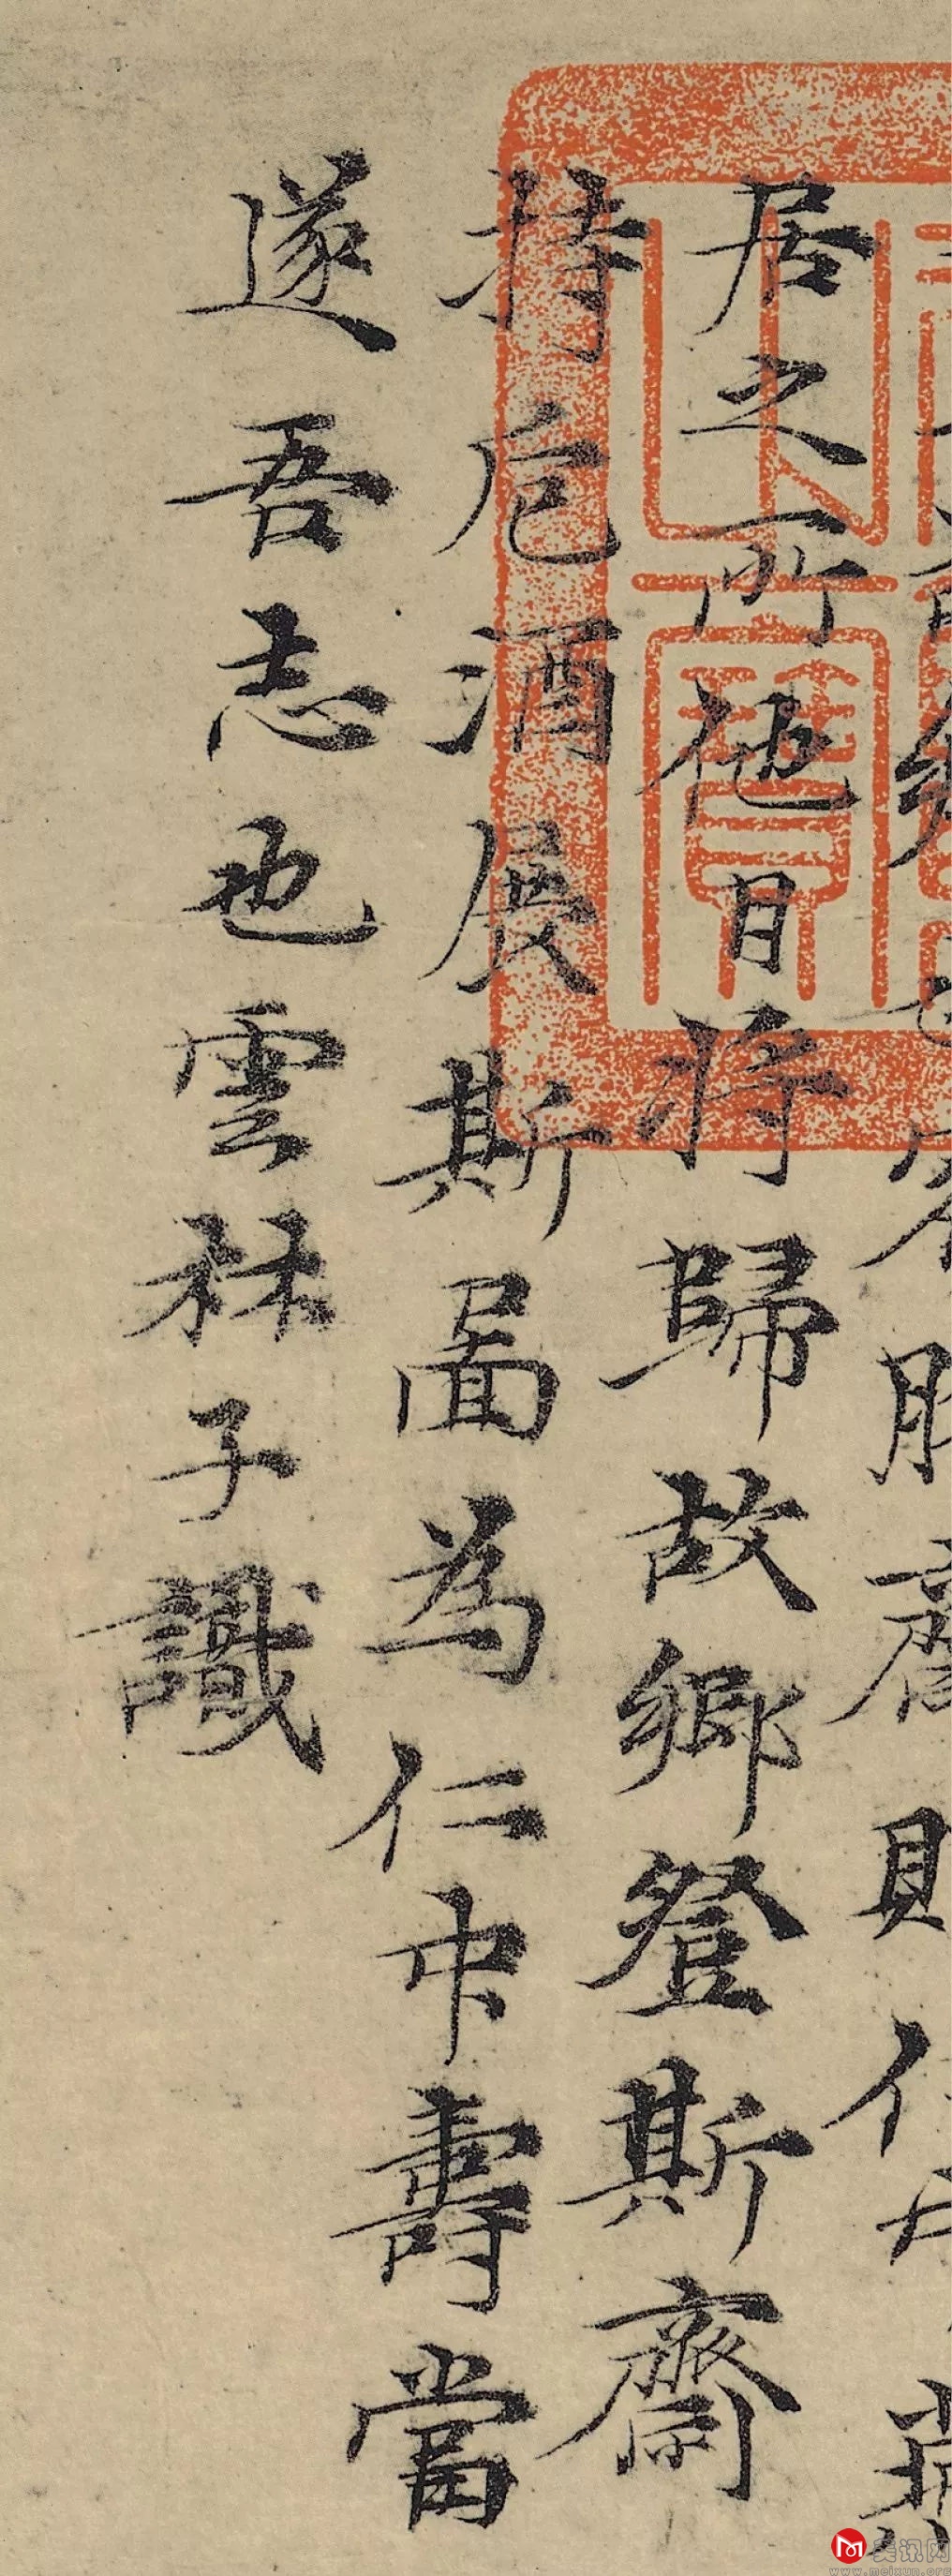 居之所他日將歸故鄉登斯齋
持卮酒展斯圖為仁中壽當
遂吾志也雲林子識
之寶
美讯网